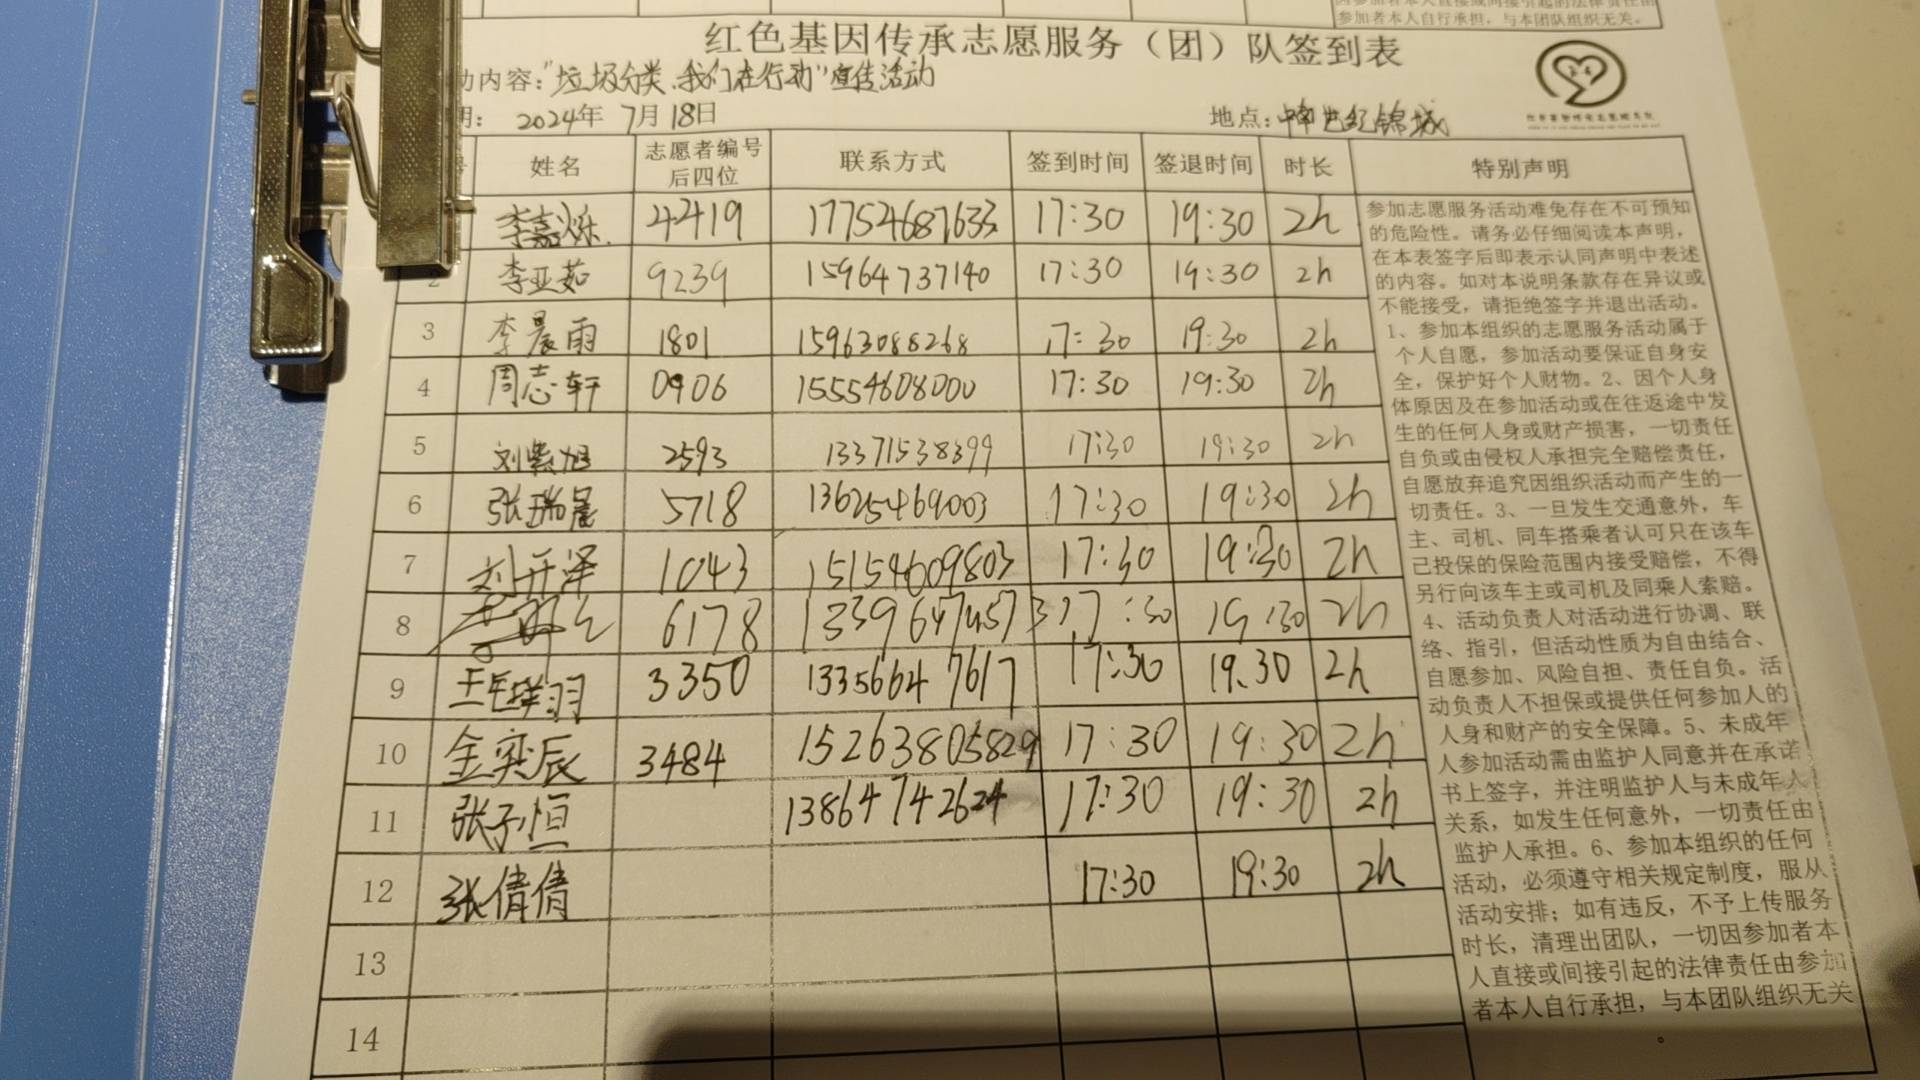 参加者本人自行承担，与本团队组织无关。
红色基因传承志愿服务（团）队签到表
动内容："垃圾分类，我们在行动"宣传活动
期： 2024年 7月18日 地点：世纪锦城
姓名 志愿者编号后四位 联系方式 签到时间 签退时间 时长 特别声明
李嘉烁 4419 17754687633 17:30 19:30 2h
2 李亚茹 9239 15964737140 17:30 19:30 2h
3 李晨雨 1801 15963088268 17:30 19:30 2h
4 周志轩 0906 15554608000 17:30 19:30 2h
5 刘紫旭 2593 13371538399 17:30 19:30 2h
6 张瑞晨 5718 13625469003 17:30 19:30 2h
7 刘开泽 1043 15154609803 17:30 19:30 2h
8 6178 17:30 19:30 2h
9 3350 13356647617 17:30 19.30 2h
10 金奕辰 3484 15263805829 17:30 19:30 2h
11 张子恒 13864742624 17:30 19:30 2h
12 张倩倩 17:30 19:30 2h
13
14
参加志愿服务活动难免存在不可预知
的危险性。请务必仔细阅读本声明，
在本表签字后即表示认同声明中表述
的内容。如对本说明条款存在异议或
不能接受，请拒绝签字并退出活动。
1、参加本组织的志愿服务活动属于
个人自愿，参加活动要保证自身安
全，保护好个人财物。2、因个人身
体原因及在参加活动或在往返途中发
生的任何人身或财产损害，一切责任
自负或由侵权人承担完全赔偿责任，
自愿放弃追究因组织活动而产生的一
切责任。3、一旦发生交通意外，车
主、司机、同车搭乘者认可只在该车
己投保的保险范围内接受赔偿，不得
另行向该车主或司机及同乘人索赔。
4、活动负责人对活动进行协调、联
络、指引，但活动性质为自由结合、
自愿参加、风险自担、责任自负。活
动负责人不担保或提供任何参加人的
人身和财产的安全保障。5、未成年
人参加活动需由监护人同意并在承诺
书上签字，并注明监护人与未成年人
关系，如发生任何意外，一切责任由
监护人承担。6、参加本组织的任何
活动，必须遵守相关规定制度，服从
活动安排；如有违反，不予上传服务
时长，清理出团队，一切因参加者本
人直接或间接引起的法律责任由参加
者本人自行承担，与本团队组织无关
。